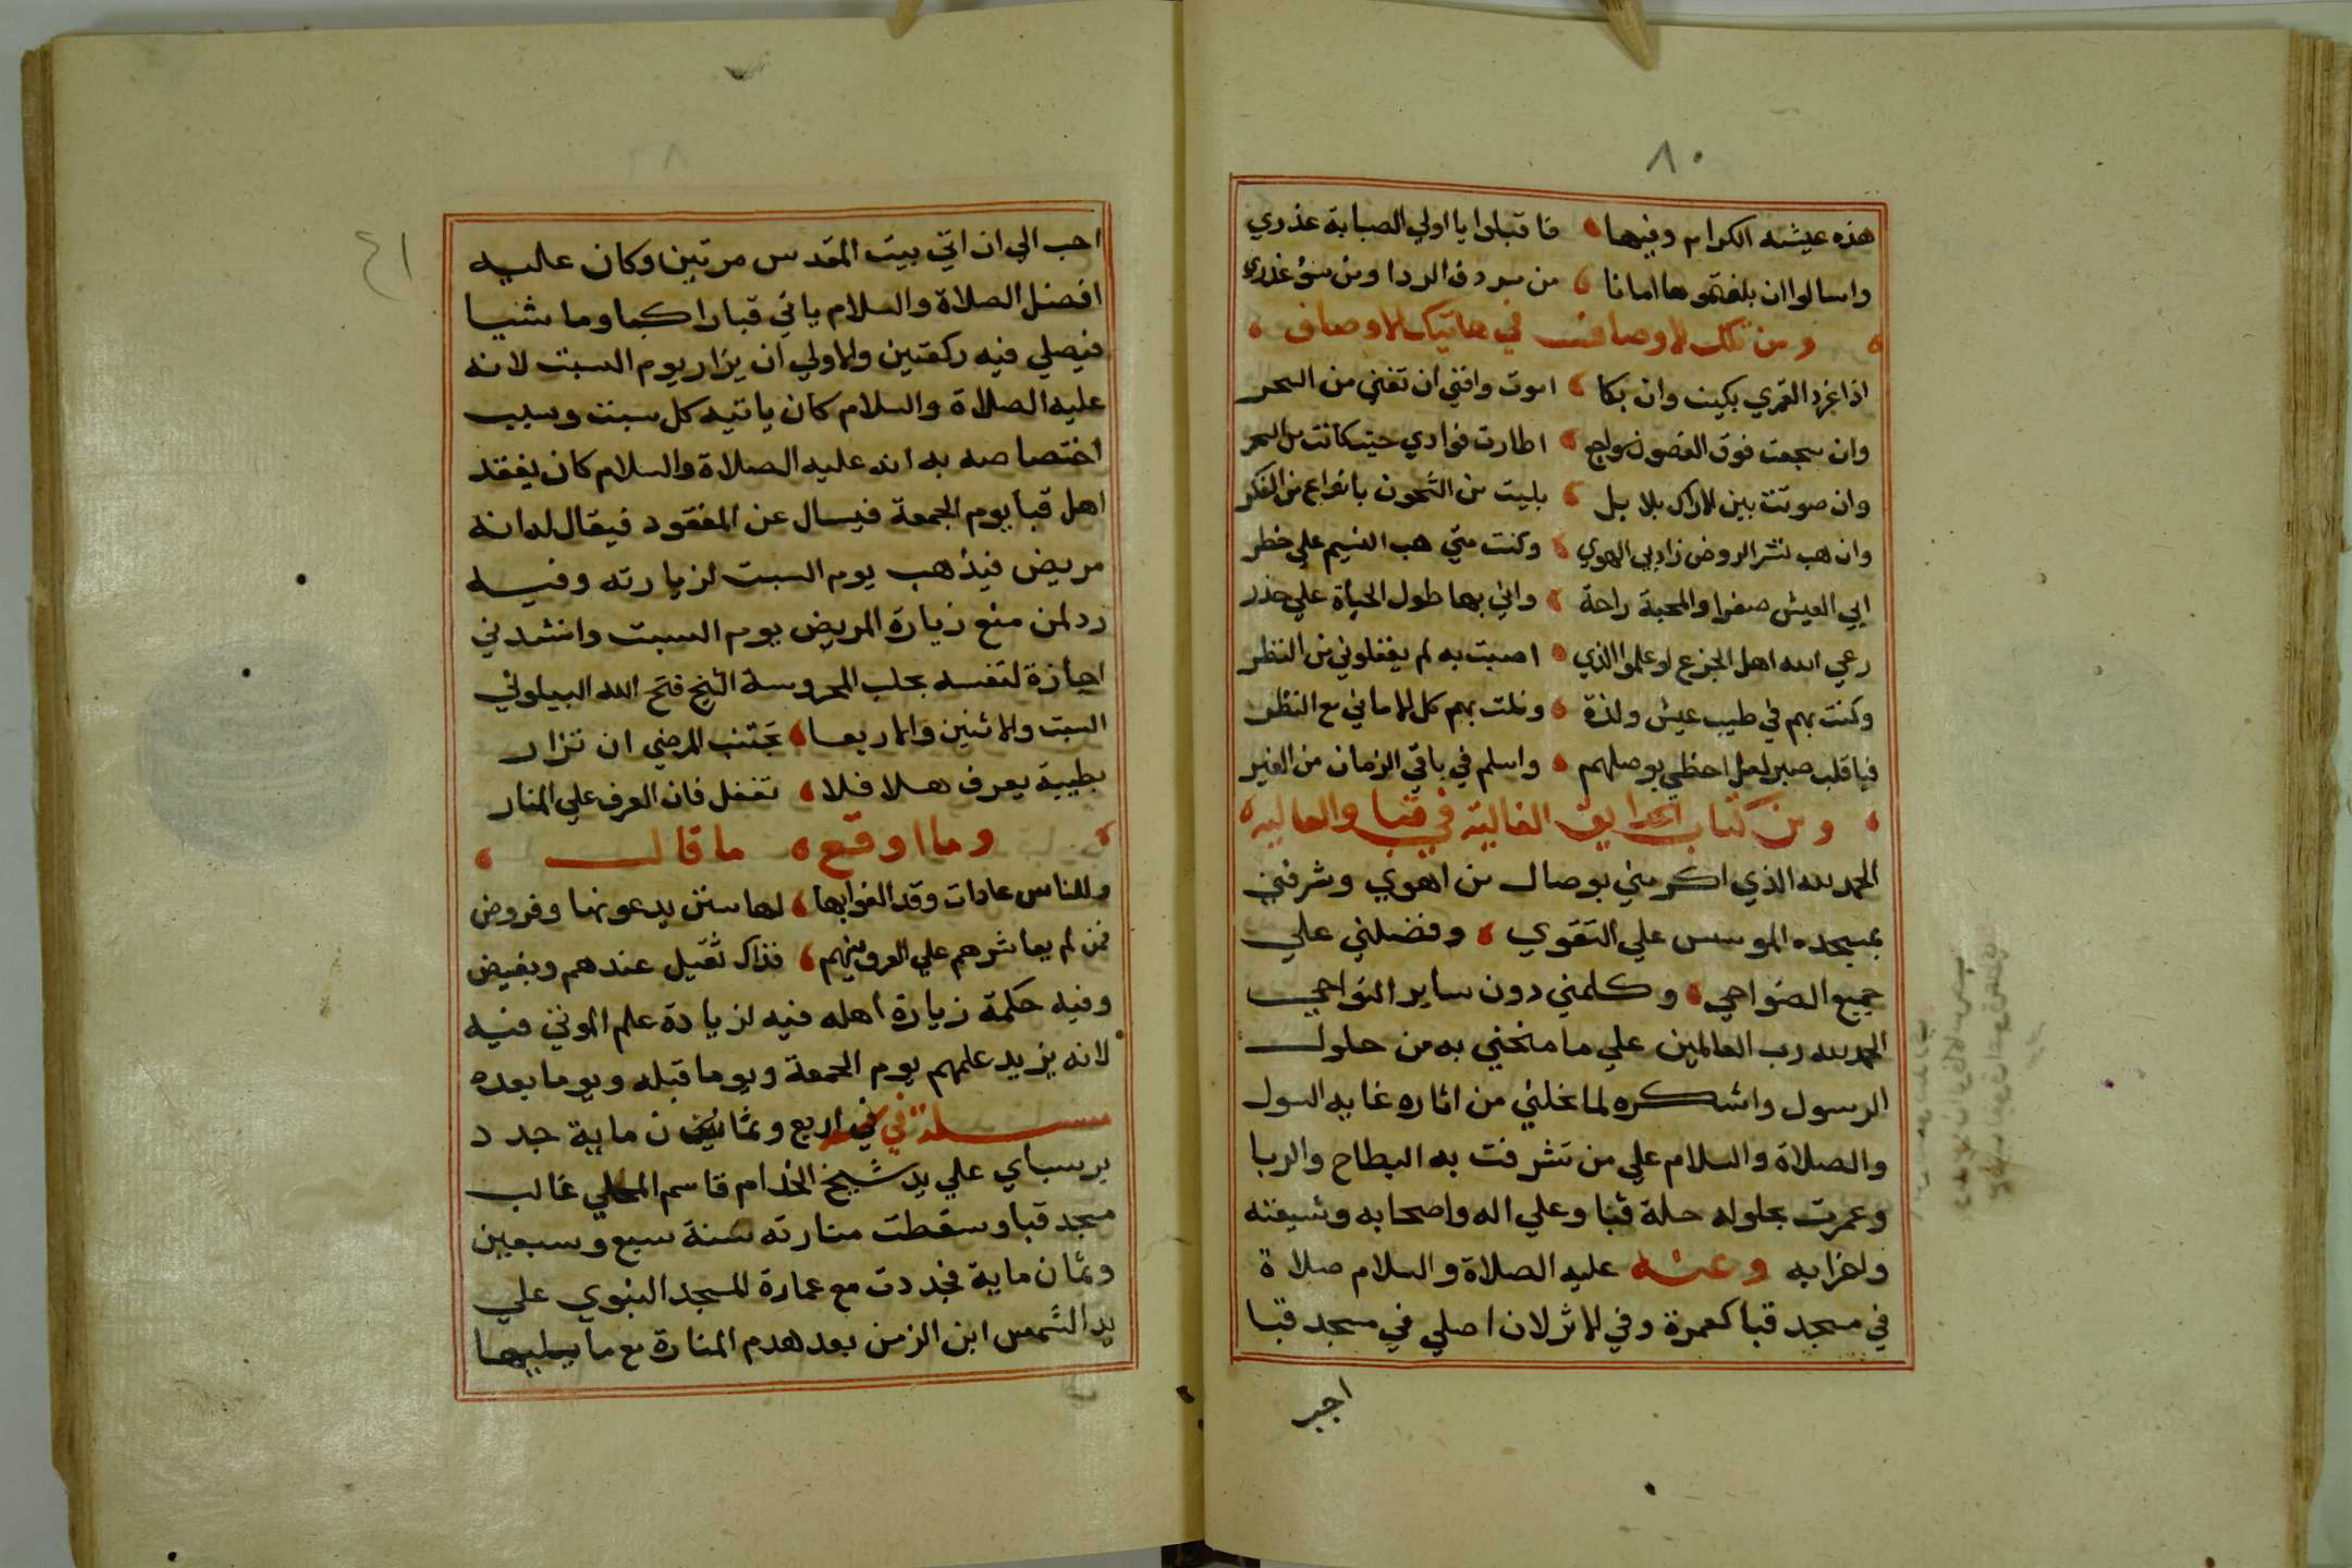 ٨٠
هذه عيشه الكرام وفيها فاقبلوا يا اولي الصبابة عذري
واسالوا ان بلغتموها امانا من صروف الردا ومن سؤ غدري
ومن تلك الاوصاف في هاتيك الاوصاف
اذا غرد القمري بكيت وان بكا اموت وافني ان تغني من السحر
وان سجعت فوق الغصون سواجع اطارت فوادي حيث كانت من السحر
وان صوتت بين الاراك بلابل بليت من الشجون بانواع من الفكر
وان هب نشر الروض زاد بي الهوي وكنت متي هب النسيم علي خطر
الي العيش صفرا والمحبة راحة واني بها طول الحياة علي حذر
رعي الله اهل الجزع لو علموا الذي اصبت به لم يغفلوني من النظر
وكنت بهم في طيب عيش ولذة ونلت بهم كل الاماني مع النظر
فيا قلب صبر لعل احظي بوصلهم واسلم في باقي الزمان من الغير
ومن كتاب الحدايق الغالية في قبا والعاليه
الحمد لله الذي اكرمني بوصال من اهوي وشرفني
بمسجده الموسس علي التقوي وفضلني علي
جميع الضواحي وكلمني دون ساير النواحي
الحمد لله رب العالمين علي ما منحني به من حلول
الرسول واشكره لما نحلني من اثاره غايه السول
والصلاة والسلام علي من تشرفت به البطاح والربا
وعمرت بحلوله حلة قبا وعلي اله واصحابه وشيعته
واحزابه وعنه عليه الصلاة والسلام صلاة
في مسجد قبا كعمرة وفي الاثر لان اصلي في مسجد قبا
احب
٤١
احب الي ان اتي بيت المقدس مرتين وكان عليه
افضل الصلاة والسلام ياتي قبا راكبا وماشيا
فيصلي فيه ركعتين والاولي ان يزار يوم السبت لانه
عليه الصلاة والسلام كان ياتيه كل سبت وسبب
اختصاصه به انه عليه الصلاة والسلام كان يفقد
اهل قبا يوم الجمعة فيسال عن المفقود فيقال له انه
مريض فيذهب يوم السبت لزيارته وفيه
رد لمن منع زيارة المريض يوم السبت وانشدني
اجازة لنفسه بحلب المحروسة الشيخ فتح الله البيلوني
السبت والاثنين والاربعا تجتنب المرضي ان تزار
بطيبة يعرف هلا فلا تغفل فان العرف علي المنار
وما اوقع ما قال
وللناس عادات وقد الفوا بها لها سنن يدعونها وفروض
فمن لم يعاشرهم علي العرف بينهم فذاك ثقيل عندهم وبغيض
وفيه حكمة زيارة اهله فيه لزيادة علم الموتي فيه
لانه يزيد علمهم يوم الجمعة ويوما قبله ويوما بعده
في اربع وثمان ماية جدد
برسباي علي يد شيخ الخدام قاسم المحلي غالب
مسجد قبا وسقطت منارته سنة سبع وسبعين
وثمان ماية فجددت مع عمارة المسجد النبوي علي
يد الشمس ابن الزمن بعد هدم المنارة مع ما يليها